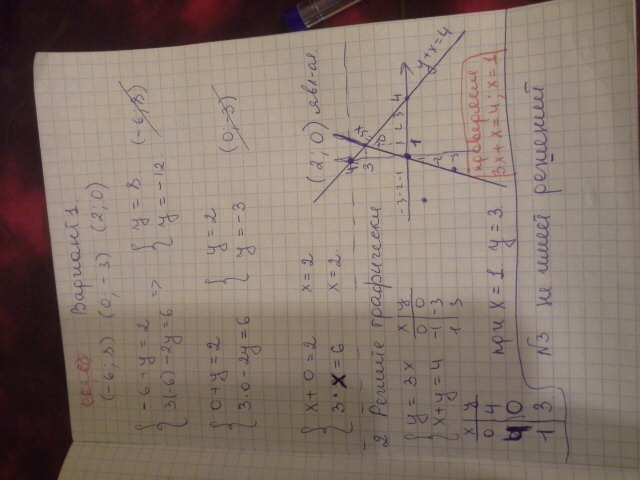 Вариант 1.
(-6; 8) (0; -3) (2; 0)
{ -6+y=2
3(-6)-2y=6 => { y=8
y=-12 (-6; 8)
{ 0+y=2
3·0-2y=6 { y=2
y=-3 (0; -3)
{ x+0=2
3·x=6 x=2
x=2 (2; 0) явл-ся
2 Решите графически
{ y=3x
x+y=4
x y
0 0
-1 -3
1 3
x y
0 4
4 0
1 3
-3 -2 -1 1 2 3 4
y+x=4
при x=1 y=3
проверяем
3x+x=4; x=1
N3 не имеет решений